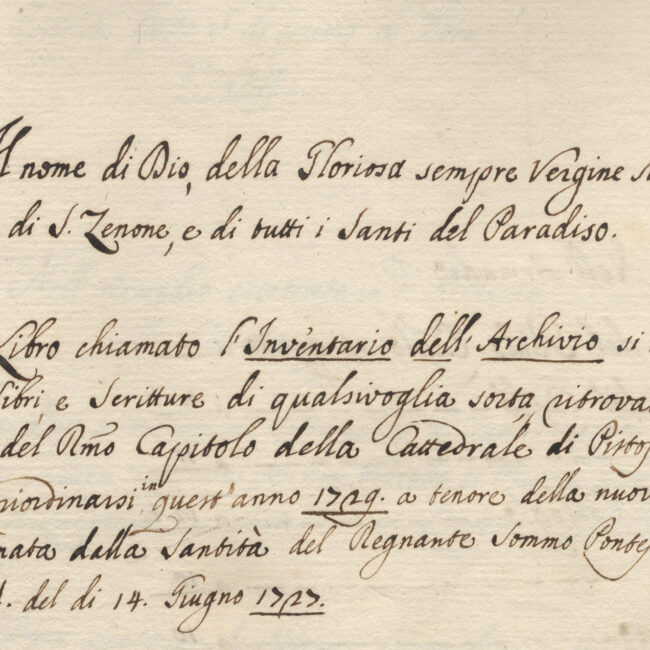 Al nome di Dio, della Gloriosa sempre Vergine
di S. Zenone, e di tutti i Santi del Paradiso.
Libro chiamato l'Inventario dell'Archivio si
libri, e Scritture di qualsivoglia sorta ritrova
del Rmo Capitolo della Cattedrale di Pistoj
riordinarsi in quest'anno 1729. a tenore della nuov
nata dalla Santità del Regnante Sommo Pontef
del di 14. Giugno 1727.